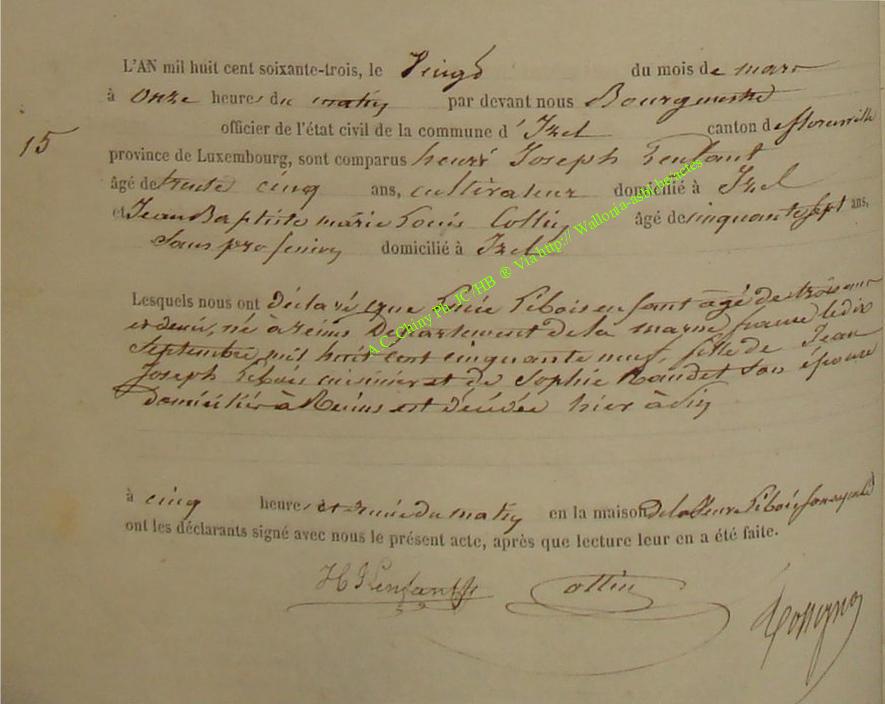 L'AN mil huit cent soixante-trois, le Vingt du mois de mars
à onze heures du matin par devant nous Bourgmestre
15
officier de l'état civil de la commune d'Izel canton de florenville
province de Luxembourg, sont comparus henri Joseph Lenfant
âgé de trente cinq ans, cultivateur domicilié à Izel
et Jean Baptiste marie Louis Collin âgé de cinquante sept ans,
Sans profession domicilié à Izel
A C. Chiny Ph. JC /HB ® Via http:// Wallonia-asbl.be/actes
Lesquels nous ont déclaré que Libois enfant âgé de trois ans
et demi, né à reims Département de la marne france le dix
Septembre mil huit cent cinquante neuf, fille de Jean
Joseph Libois cuisinier et de Sophie Naudet son épouse
domiciliés à Reims est décédée hier à
à cinq heures et demie du matin en la maison de la Veuve Libois
ont les déclarants signé avec nous le présent acte, après que lecture leur en a été faite.
H J Lenfant
Collin